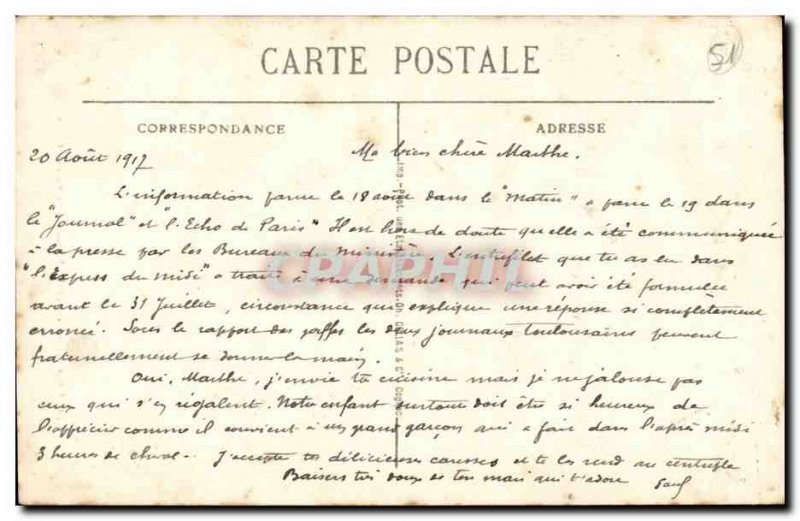 CARTE POSTALE
51
CORRESPONDANCE
ADRESSE
20 Août 1917 Ma bien chère Marthe.
L'information parue le 18 août dans le "Matin" a paru le 19 dans
le "Journal" et "l'Echo de Paris" Il est hors de doute qu'elle a été communiquée
à la presse par les Bureaux du Ministère. L'entrefilet que tu as lu dans
"l'Express du Midi" a trait à une demande qui peut avoir été formulée
avant le 31 Juillet, circonstance qui explique une réponse si complètement
erronée. Sous le rapport des gaffes les deux journaux toulousains peuvent
fraternellement se donner la main.
Oui, Marthe, j'envie ta cuisine mais je ne jalouse pas
ceux qui s'en régalent. Notre enfant surtout doit être si heureux de
l'apprécier comme il convient à un grand garçon qui a fait dans l'après midi
3 heures de cheval.. J'accepte tes délicieuses caresses et te les rends au centuple
Baisers très doux de ton mari qui t'adore
CPAPHIL